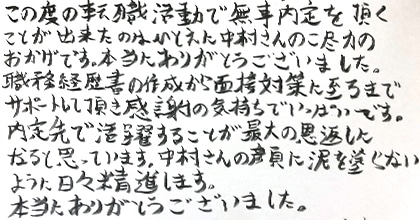 この度の転職活動で無事内定を頂く
ことが出来たのはひとえに中村さんのご尽力の
おかげです。本当にありがとうございました。
職務経歴書の作成から面接対策に至るまで
サポートして頂き感謝の気持ちでいっぱいです。
内定先で活躍することが最大の恩返しに
なると思っています。中村さんの顔に泥を塗らない
ように日々精進します。
本当にありがとうございました。